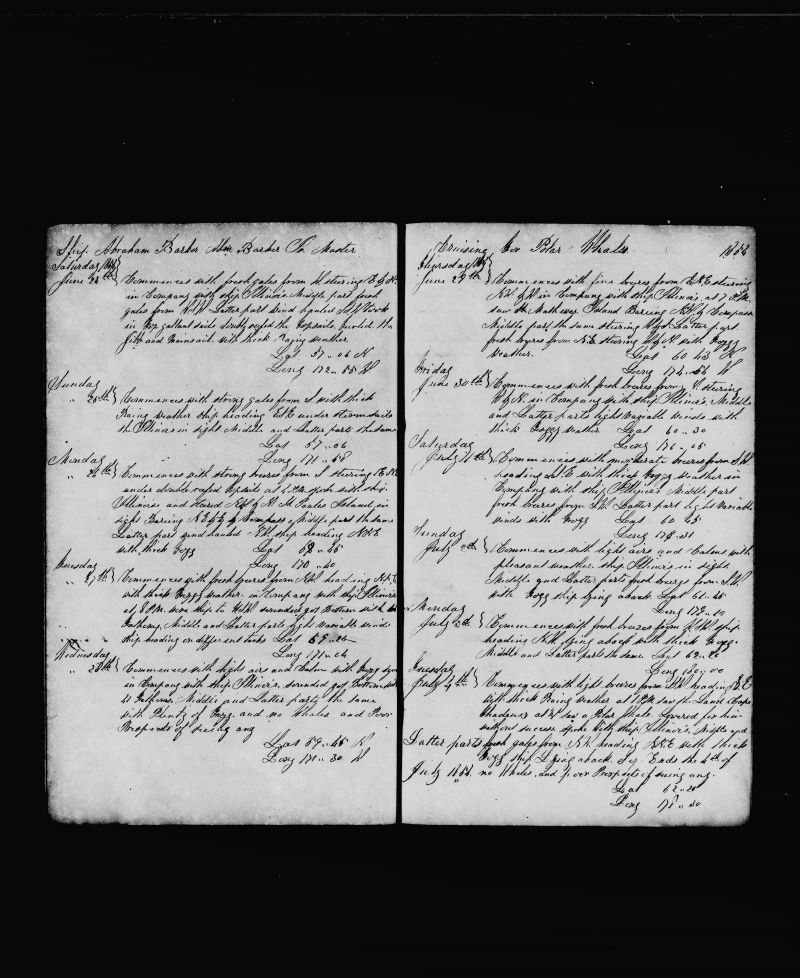 Ship Abraham Barker Abm Barker Jr Master
Saturday
June 24th Commences with fresh gales from W steering E by N
in Company with ship Illinois Middle part fresh
gales from Latter part wind hauled took
in gallant sails double reefed the topsails furled the
Jibb and mainsail with thick Rainy weather
Lat 57 .. 06 N
Long 172 .. 55 W
Sunday
25th Commences with strong gales from S with thick
Rainy weather ship heading ESE under stormsails
the Illinois in sight Middle and Latter part the same
Lat 57 .. 06
Long 171 .. 58
Monday
.. 26th Commences with strong breezes from S steering
under double reefed topsails at P.M. spoke with ship
Illinois and steered by N St Paules Island in
sight Bearing by Compass Middle part the same
Latter part wind hauled ship heading NNE
with thick Fogg Lat 58 .. 45
Long 170 .. 40
Tuesday
.. 27th Commences with fresh breezes from heading NNE
with thick Foggy weather in Company with ship Illinois
at 8 P.M. wore ship to sounded got Bottom with
Fathoms, Middle and Latter parts light variable winds
ship heading on different tacks Lat 59 ..
Long 171 .. 04
Wednesday
.. 28th Commences with light airs and Calm with Fogg
in Company with ship Illinois sounded got Bottom with
41 Fathoms, Middle and Latter parts the same
with Plenty of Fogg and no Whales and Poor
Prospects of seeing any
Lat 59 .. 45 N
Long 171 .. 30 W
Cruising for Polar Whales 1858
Thursday
June 29th Commences with fine breezes from ENE steering
in Company with ship Illinois at 7 P.M.
saw St Mathews Island Bearing by Compass
Middle part the same steering Latter part
fresh breezes from N.E. steering with Fogg
weather. Lat 60 43 N
Long 174 .. 56 W
Friday
June 30th Commences with fresh breezes from steering
by N in Company with ship Illinois, Middle
and Latter parts light Variable winds with
thick Foggy weather Lat 60 .. 30
Long 176 .. 05
Saturday
July 1th Commences with moderate breezes from
heading with thick Foggy weather in
Company with ship Illinois Middle part
fresh breezes from Latter part light variable
winds with Fogg Lat 60 45
Long 178 .. 31
Sunday
July Commences with light airs and Calms with
pleasant weather ship Illinois in sight
Middle and Latter parts fresh breezes from
with Fogg ship lying aback Lat 61 .. 45
Long 179 .. 10
Monday
July Commences with fresh breezes from ship
heading lying aback with thick Fogg
Middle and Latter parts the same Lat 62 ..
Long 180 .. 00
Tuesday
July 4th Commences with light breezes from heading
with thick Rainy weather at P.M. saw the Land
saw a Polar Whale Lowered for him
without success spoke with ship Illinois, Middle and
Latter parts fresh gales from heading with thick
Fogg ship Lying aback So Ends the 4th of
July no Whales and poor Prospects of seeing any.
Lat 62 ..
Long 178 .. 30